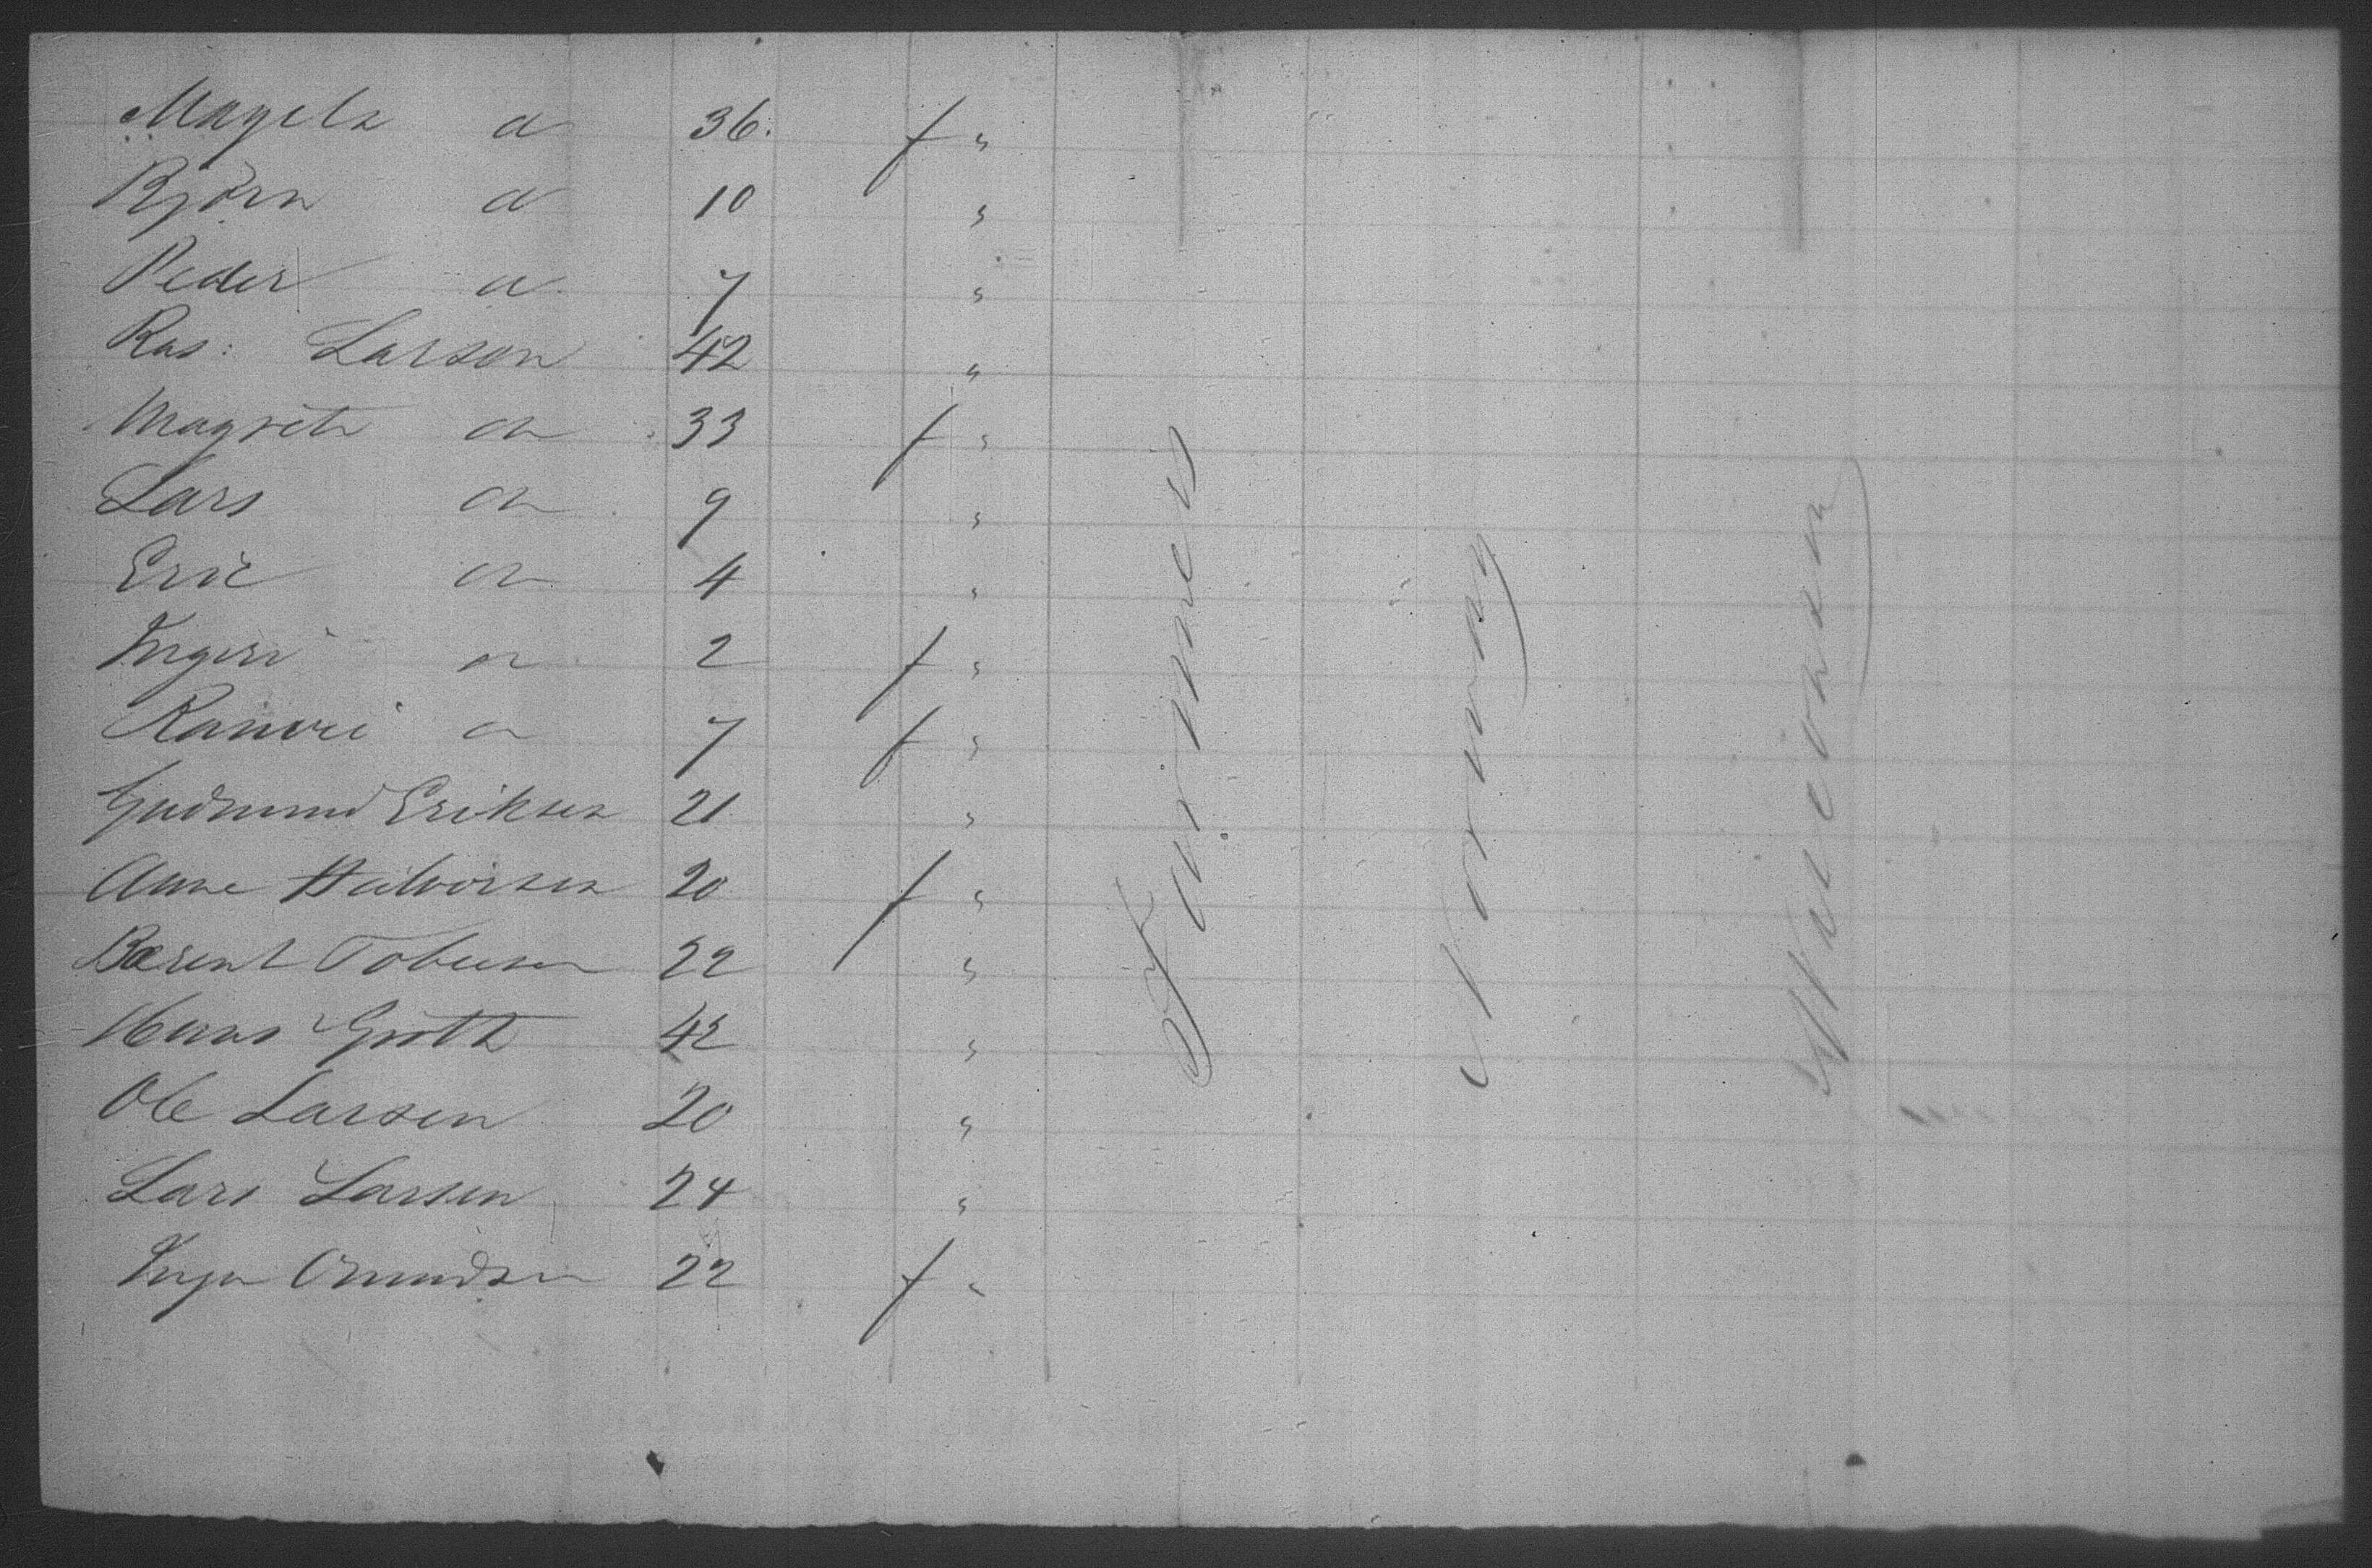 Magela a 36. f "
Björn a 10 "
Peder a 7 "
Ras: Larson 42 "
Magrete a 33 f "
Lars a 9 "
Eric a 4 "
Ingeri a 2 f "
Ranvei a 7 f "
Gudmund Eriksen 21 "
Anne Halvorsen 20 f "
Berent Tobiesen 22 "
Hans Groth 42 "
Ole Larsen 20 "
Lars Larsen 24 "
Inga Omundsen 22 f "
Farmers
Norway
Wisconsin